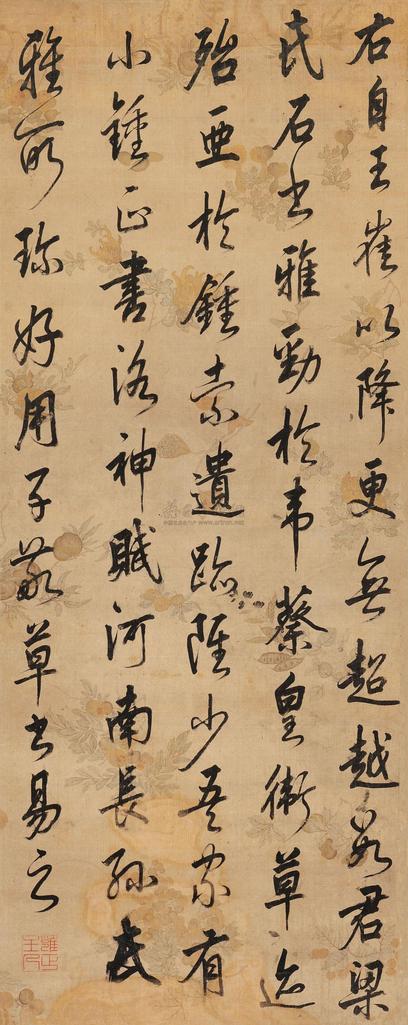 右自王崔以降更無超越若君梁
氏石书雅勁於韦蔡皇衛草迹
殆亜於鍾索遺跡雖少吾家有
小鍾正書洛神賦河南長孫氏
雅所珍好用子敬草书易之